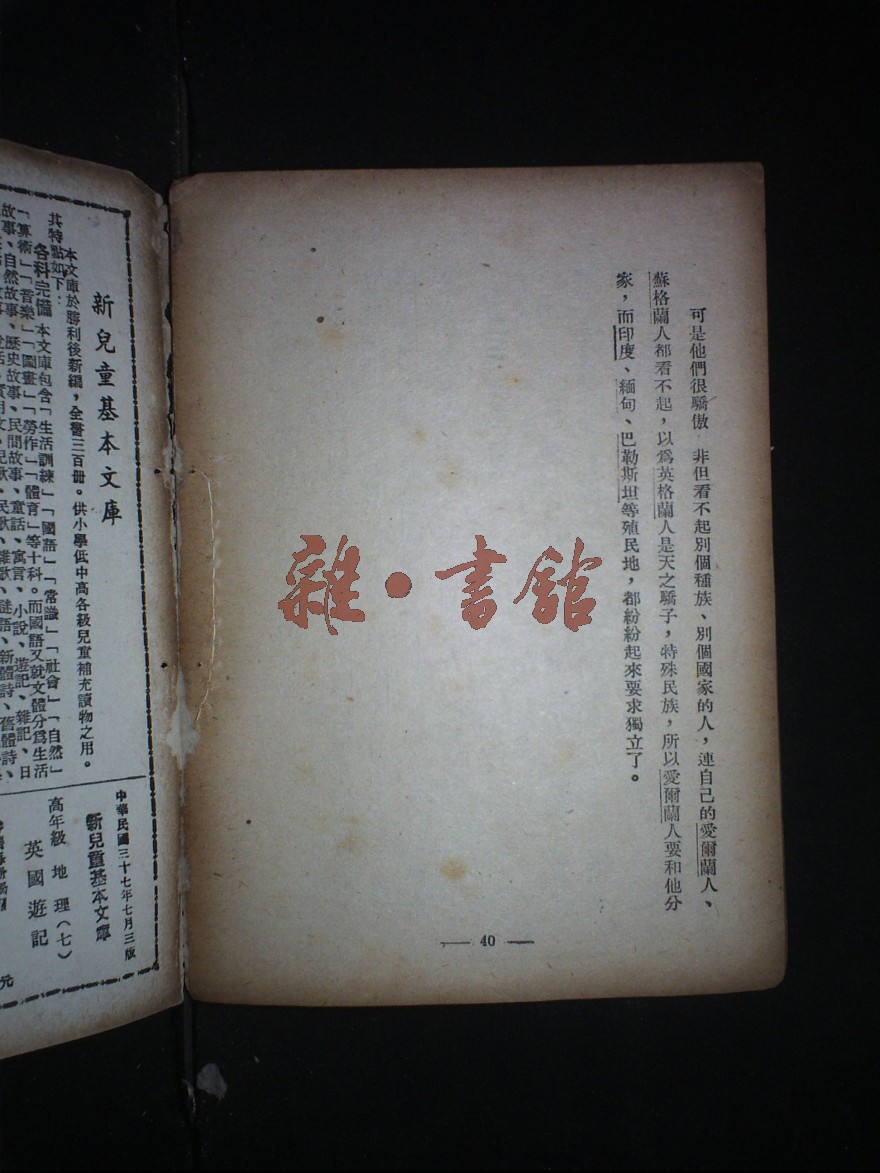 可是他們很驕傲 非但看不起別個種族、別個國家的人，連自己的愛爾蘭人、
蘇格蘭人都看不起，以爲英格蘭人是天之驕子，特殊民族，所以愛爾蘭人要和他分
家，而印度、緬甸、巴勒斯坦等殖民地，都紛紛起來要求獨立了。
— 40 —
雜·書館
新兒童基本文庫
本文庫於勝利後新編，全書三百冊。供小學低中高各級兒童補充讀物之用。
其特點如下：
各科完備 本文庫包含「生活訓練」「國語」「常識」「社會」「自然」
「算術」「音樂」「圖畫」「勞作」「體育」等十科。而國語又就文體分爲生活
故事、自然故事、歷史故事、民間故事、童話、寓言、小說、遊記、雜記、日
中華民國三十七年七月三版
新兒童基本文庫
高年級 地理（七）
英國遊記
元